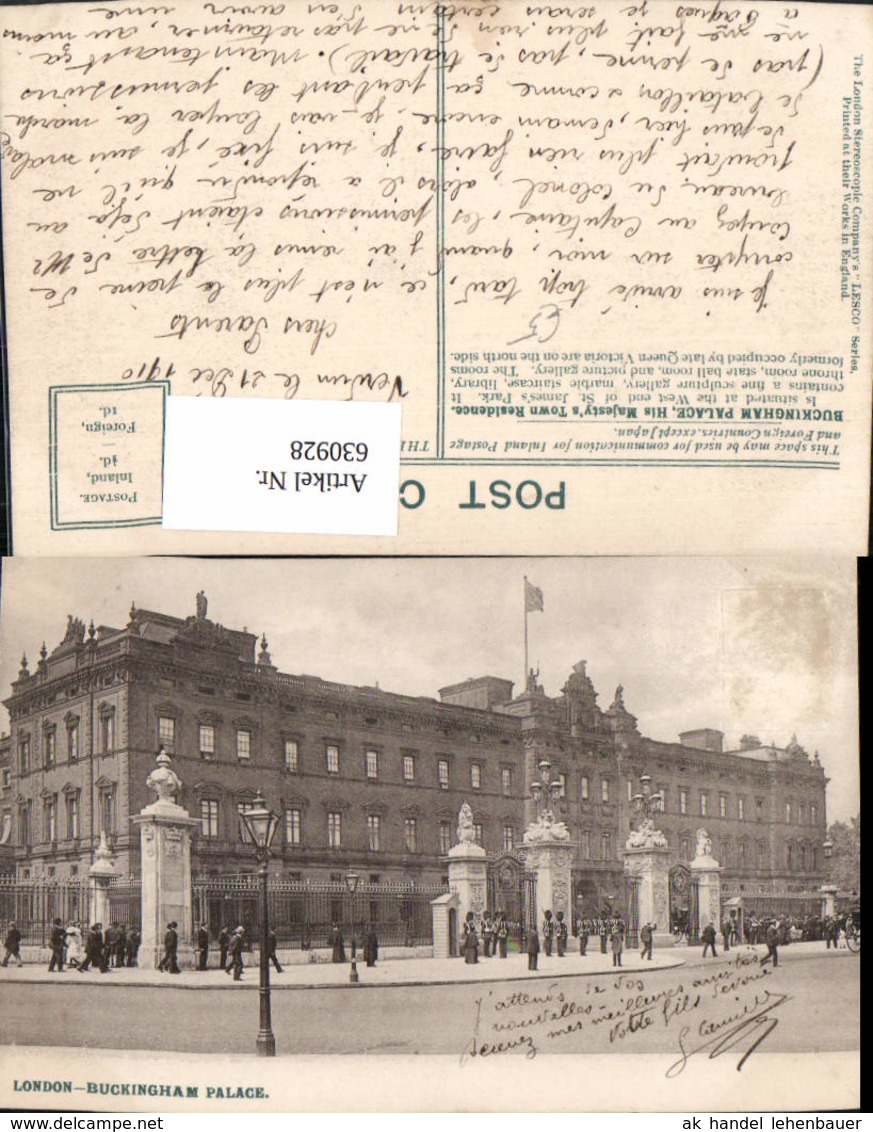 POST C
THE
Artikel Nr.
630928
POSTAGE.
Inland,
½d.
Foreign,
1d.
This space may be used for communication for Inland Postage
and Foreign Countries, except Japan.
BUCKINGHAM PALACE, His Majesty's Town Residence.
Is situated at the West end of St. James's Park. It
contains a fine sculpture gallery, marble staircase, library,
throne room, state ball room, and picture gallery. The rooms
formerly occupied by late Queen Victoria are on the north side.
The London Stereoscopic Company's "LESCO" Series.
Printed at their Works in England.
Verdun le 21 Déc 1910
Chers Parents
ce n'est plus la peine de
compter sur moi, quand j'ai remis la lettre de Mr
au Capitaine, les permissions étaient déjà au
bureau du Colonel, alors il a répondu qu'il ne
pouvait plus rien faire, je suis fixé, je suis malade
depuis hier, demain encore, je vais louper la marche
de bataillon & comme ça pendant les permissions
(pas de perme, pas de travail). Maintenant ça
ne me fait plus rien de ne pas retourner, au moins
à Pâques je serais certain d'en avoir une
je suis arrivé trop tard,
J'attends de vos
nouvelles.
Recevez mes meilleures amitiés
Votre fils dévoué
Camille
LONDON—BUCKINGHAM PALACE.
ak handel lehenbauer